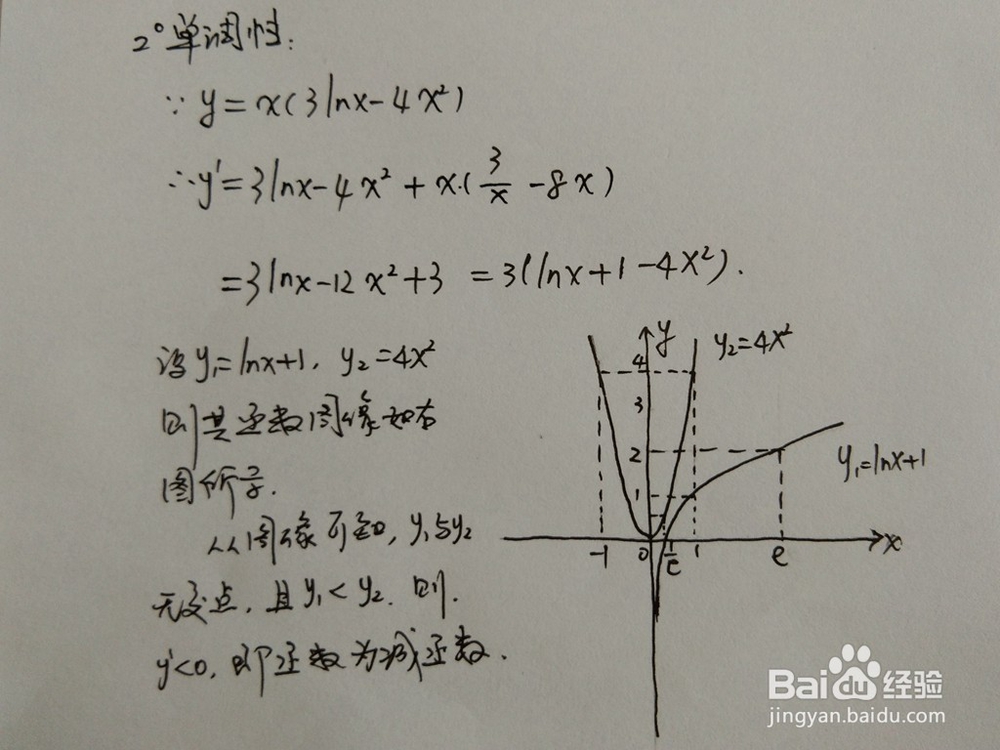 2° 单调性:
∵ y = x(3lnx - 4x²)
∴ y' = 3lnx - 4x² + x·(3/x - 8x)
= 3lnx - 12x² + 3 = 3(lnx + 1 - 4x²).
设 y₁ = lnx+1, y₂ = 4x²
则其函数图像如右
图所示.
从图像可知, y₁与y₂
无交点, 且 y₁ < y₂. 则.
y'<0, 即函数为减函数.
y
y₂=4x²
4
3
2
y₁=lnx+1
1
-1 0 1/e 1 e x
Baidu 经验
jingyan.baidu.com